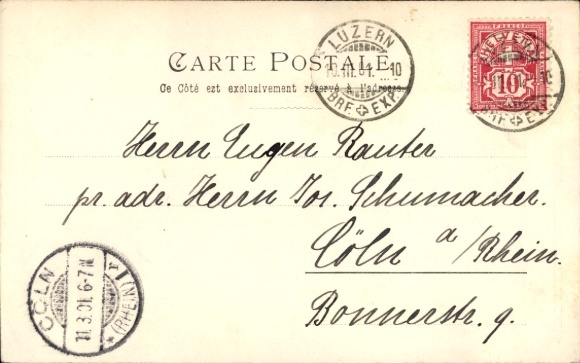 CARTE POSTALE.
Ce Côté est exclusivement réservé à l'adresse.
LUZERN
10.III.01. 10
BRF EXP.
HELVETIA
10
BRF EXP.
Herrn Eugen Rauter
pr. adr. Herrn Jos. Schumacher.
Cöln a/Rhein.
Bonnerstr. 9.
CÖLN
11.3.01. 6-7 N
(RHEIN)